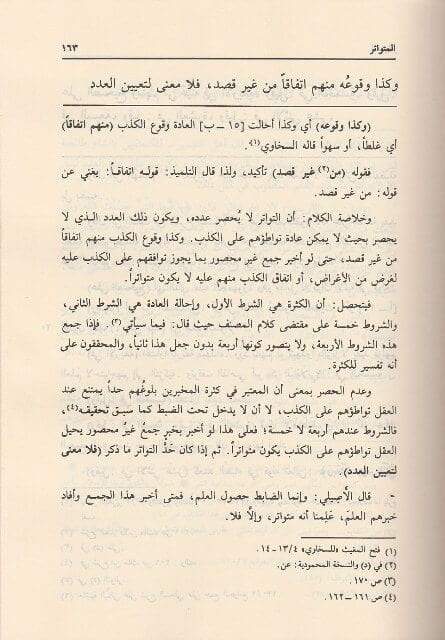 المتواتر
١٦٣
وكذا وقوعُه منهم اتفاقاً من غير قصد، فلا معنى لتعيين العدد
(وكذا وقوعه) أي وكذا أحالت [١٥ – ب] العادة وقوع الكذب (منهم اتفاقاً)
أي غلطاً، أو سهواً قاله السخاوي(١).
فقوله (من(٢) غير قصد) تأكيد، ولذا قال التلميذ: قولـه اتفاقـاً: يغني عن
قوله: من غير قصد.
وخلاصة الكلام: أن التواتر لا يُحصر عدده، ويكون ذلك العدد الـذي لا
يحصر بحيث لا يمكن عادة تواطؤهم على الكذب. وكذا وقوع الكذب منهم اتفاقاً
من غير قصد، حتى لو أخبر جمع غير محصور بما يجوز توافقهم على الكذب عليه
لغرض من الأغراض، أو اتفاق الكذب منهم عليه لا يكون متواتراً.
فيتحصل: أن الكثرة هي الشرط الأول، وإحالة العادة هي الشرط الثاني،
والشروط خمسة على مقتضى كلام المصنف حيث قال: فيما سيأتي(٣). فإذا جمع
هذه الشروط الأربعة، ولا يتصور كونها أربعة بدون جعل هذا ثانياً، والمحققون على
أنه تفسير للكثرة.
وعدم الحصر بمعنى أن المعتبر في كثرة المخبرين بلوغُهم حداً يمتنع عند
العقل تواطؤهم على الكذب، لا أن لا يدخل تحت الضبط كما سبق تحقيقـه(٤)،
فالشروط عندهم أربعة لا خمسة؛ فعلى هذا لو أخبر بخبرٍ جمعٌ غيرُ محصور يحيل
العقل تواطؤهم على الكذب يكون متواتراً. ثم إذا كان حَدُّ التواتر ما ذكر (فلا معنى
لتعيين العدد).
- قال الأصِيلي: وإنما الضابط حصول العلم، فمتى أخبر هذا الجمـع وأفاد
خبرهم العلمَ، عَلِمنا أنه متواتر، وإلّا فلا.
(١) فتح المغيث «للسخاوي» ١٣/٤-١٤.
(٢) في (٥) والنسخة المحمودية: عن.
(٣) ص ١٧٠.
(٤) ص ١٦١ – ١٦٢.